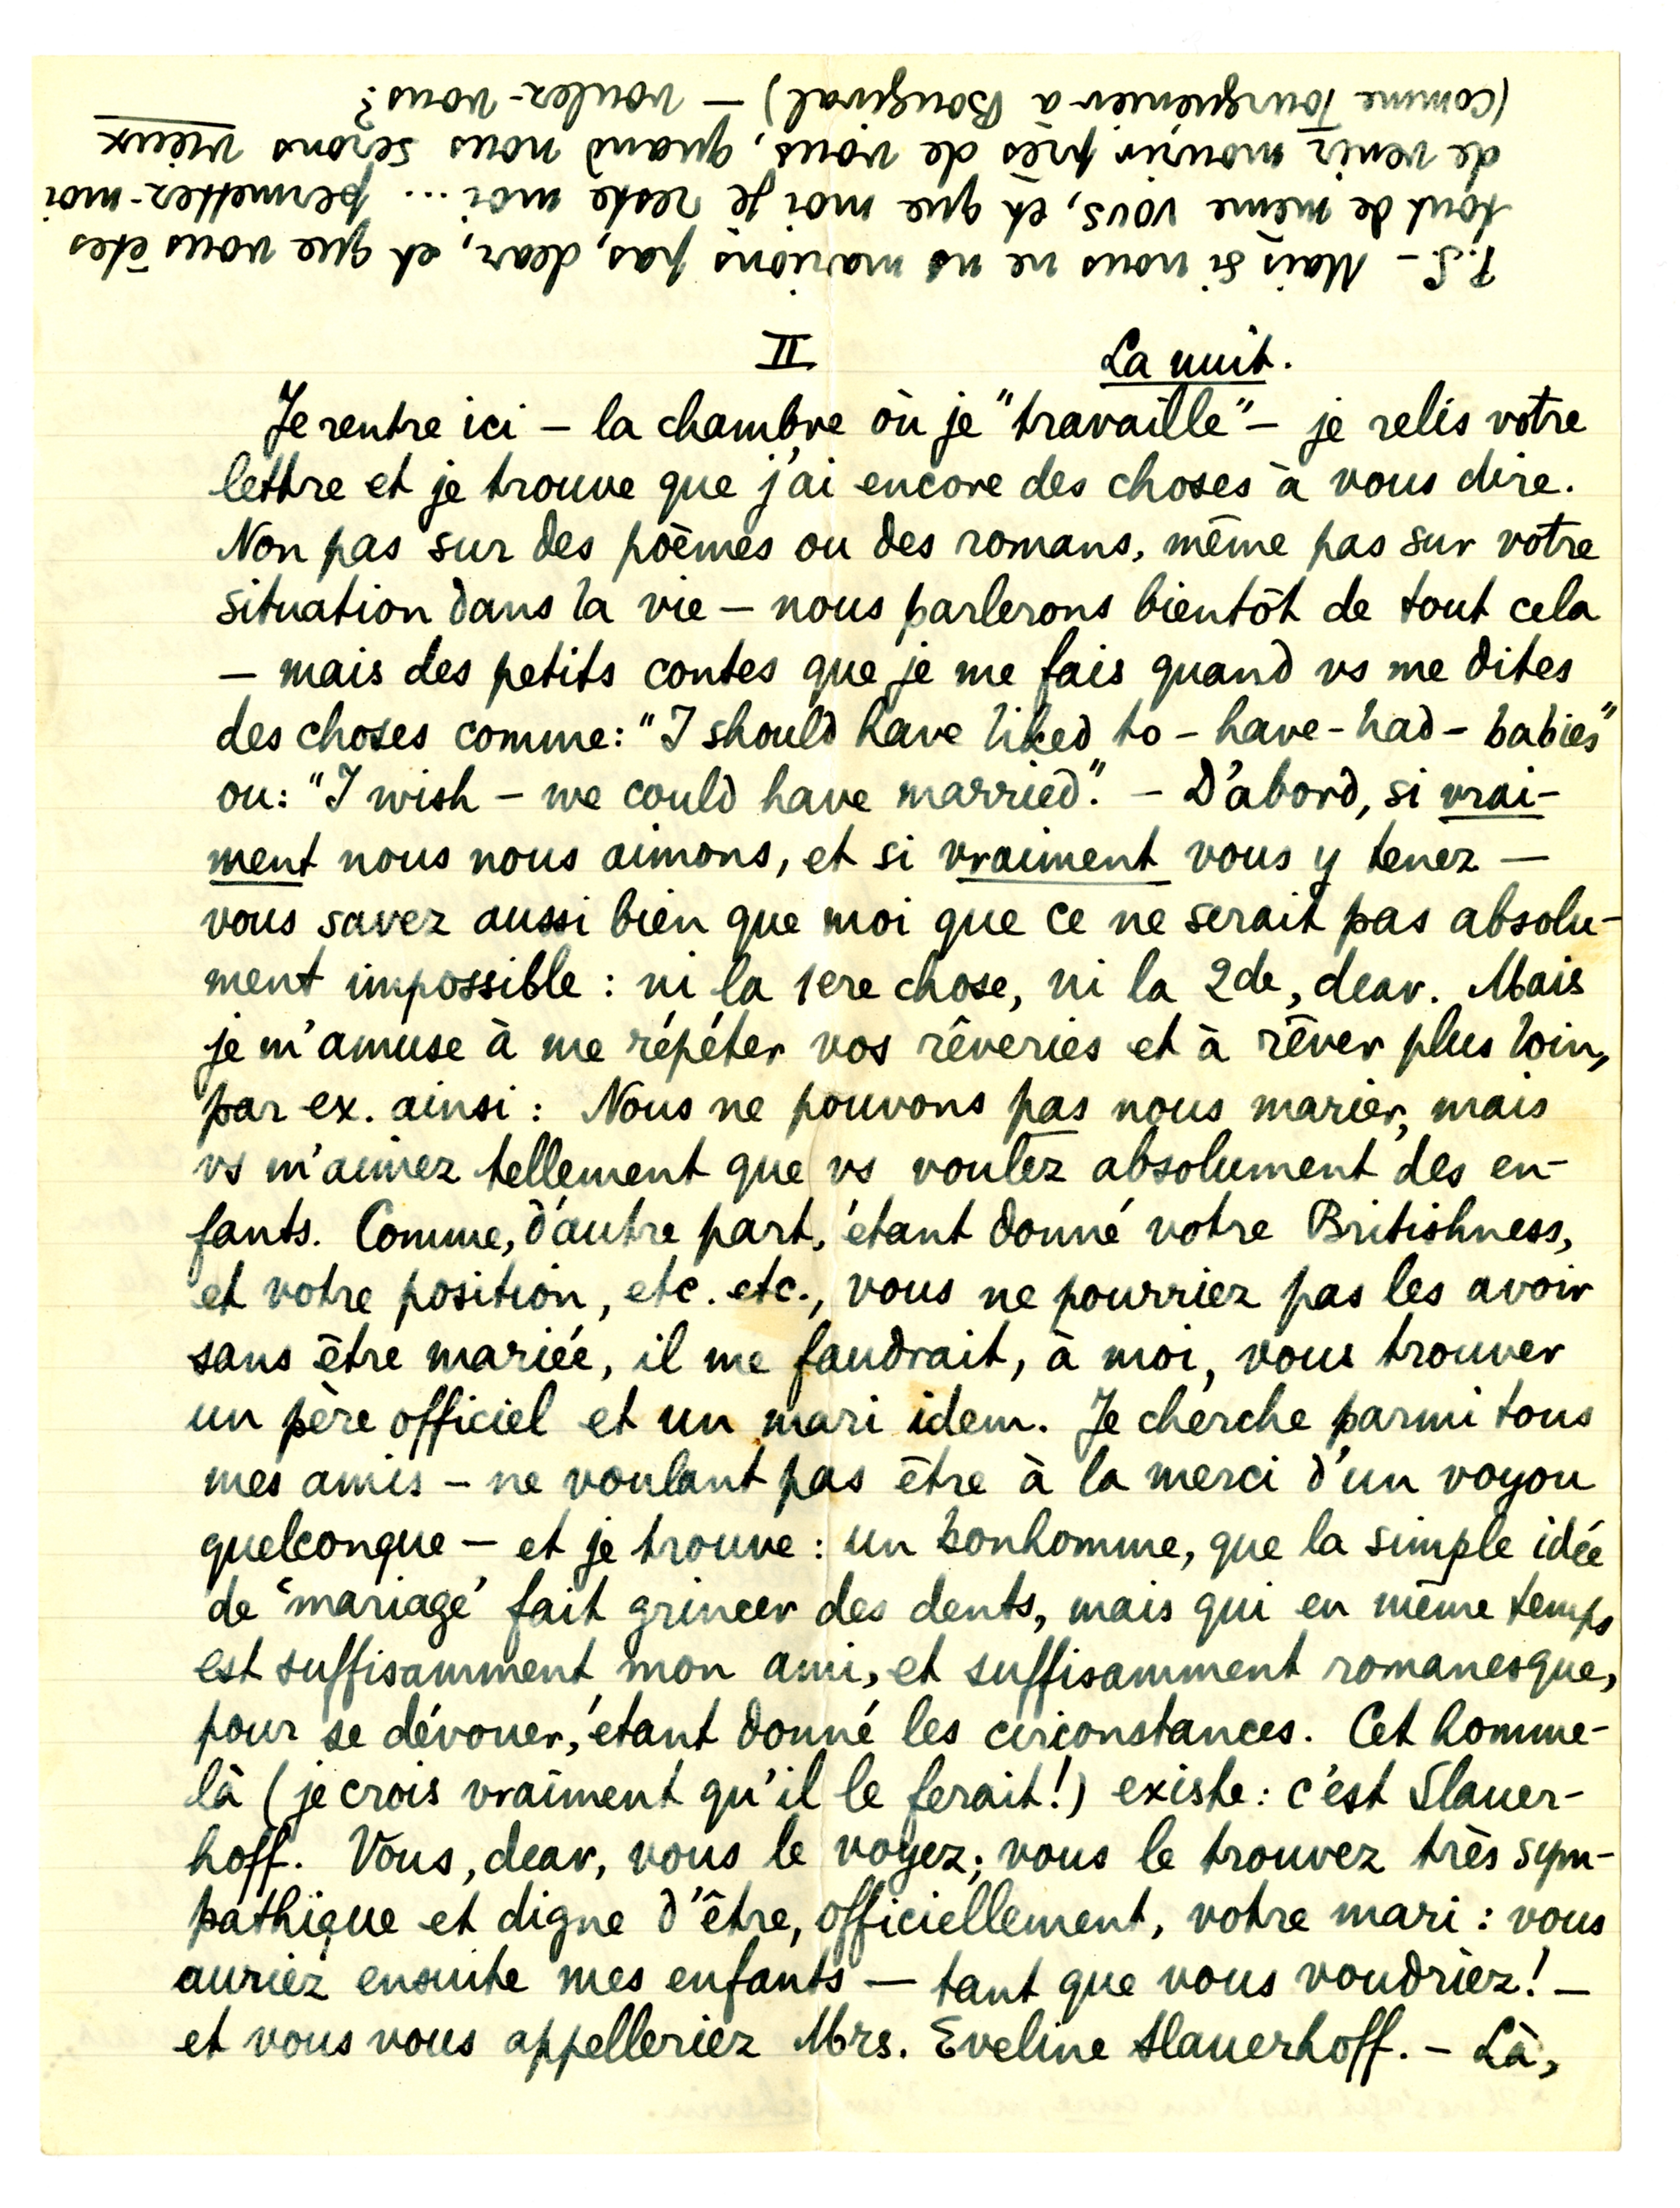 P.S. – Mais si nous ne ns marions pas, dear, et que vous êtes
tout de même vous, et que moi je reste moi ... permettez-moi
de venir mourir près de vous, quand nous serons vieux
(comme Tourgueniev à Bougival) – voulez-vous?
II La nuit.
Je rentre ici – la chambre où je "travaille" – je relis votre
lettre et je trouve que j'ai encore des choses à vous dire.
Non pas sur des poèmes ou des romans, même pas sur votre
situation dans la vie – nous parlerons bientôt de tout cela
– mais des petits contes que je me fais quand vs me dites
des choses comme: "I should have liked to – have – had – babies"
ou: "I wish – we could have married". – D'abord, si vrai-
ment nous nous aimons, et si vraiment vous y tenez –
vous savez aussi bien que moi que ce ne serait pas absolu-
ment impossible : ni la 1ere chose, ni la 2de, dear. Mais
je m'amuse à me répéter vos rêveries et à rêver plus loin,
par ex. ainsi : Nous ne pouvons pas nous marier, mais
vs m'aimez tellement que vs voulez absolument des en-
fants. Comme, d'autre part, étant donné votre Britishness,
et votre position, etc. etc., vous ne pourriez pas les avoir
sans être mariée, il me faudrait, à moi, vous trouver
un père officiel et un mari idem. Je cherche parmi tous
mes amis – ne voulant pas être à la merci d'un voyou
quelconque – et je trouve : un bonhomme, que la simple idée
de 'mariage' fait grincer des dents, mais qui en même temps
est suffisamment mon ami, et suffisamment romanesque,
pour se dévouer, étant donné les circonstances. Cet homme-
là (je crois vraiment qu'il le ferait!) existe : c'est Slauer-
hoff. Vous, dear, vous le voyez; vous le trouvez très sym-
pathique et digne d'être, officiellement, votre mari : vous
auriez ensuite mes enfants – tant que vous voudriez! –
et vous vous appelleriez Mrs. Eveline Slauerhoff. – Là,